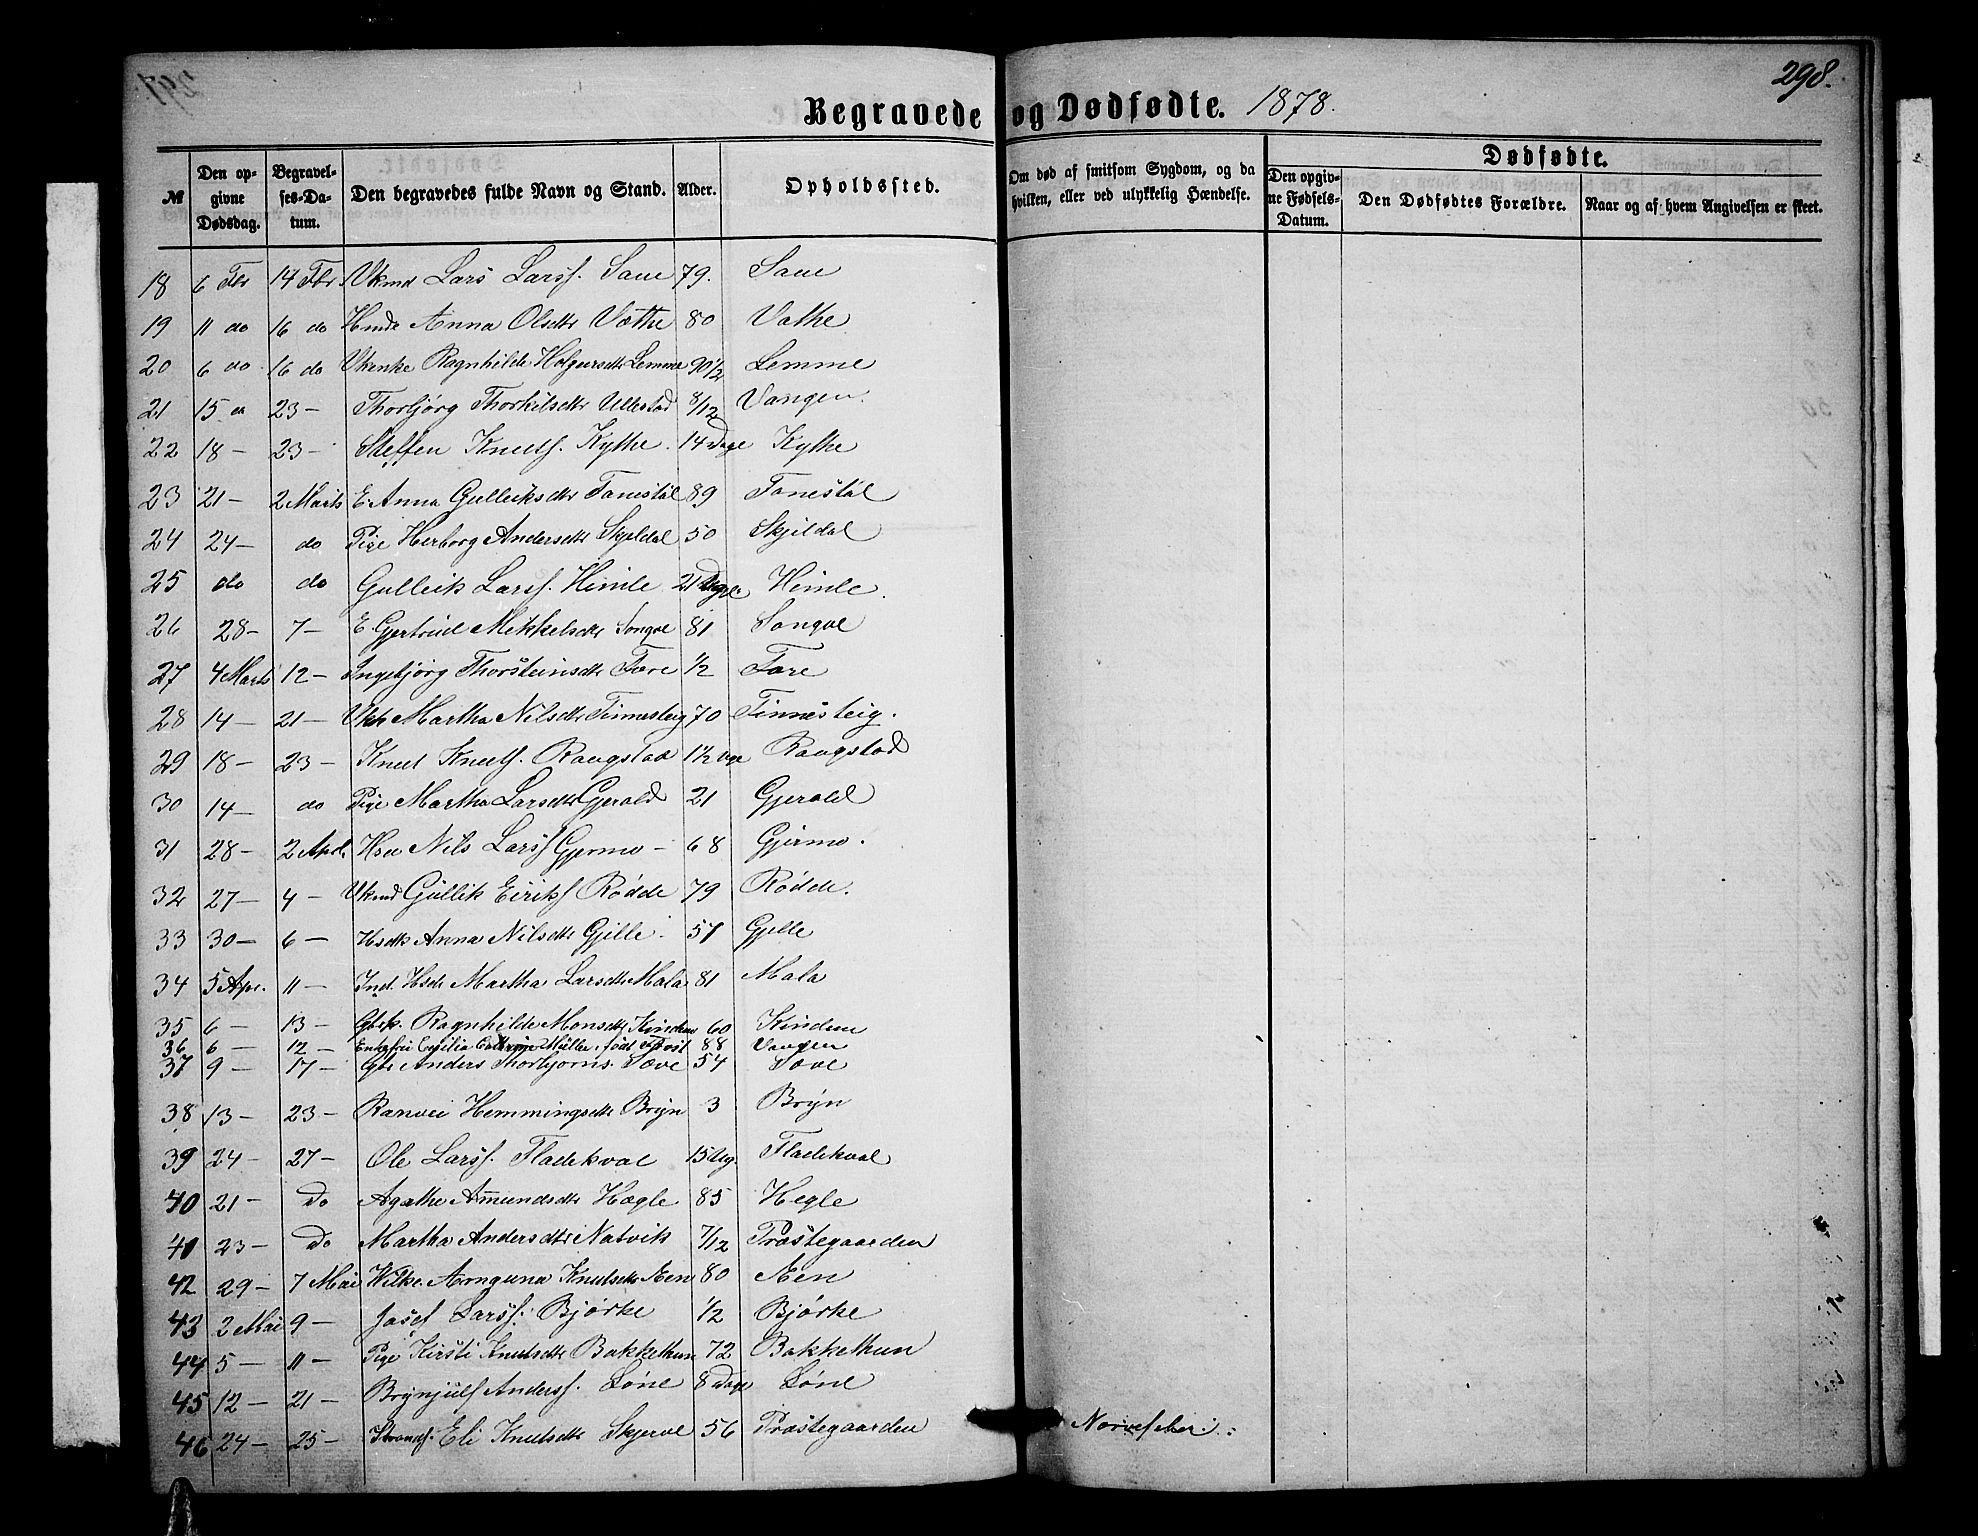 298.
Begravede og Dødfødte. 1878.
№ Den op-givne Dødsdag. Begravel-ses-Da-tum. Den begravedes fulde Navn og Stand. Alder. Opholdssted. Om død af smitsom Sygdom, og da hvilken, eller ved ulykkelig Hændelse. Dødfødte.
Den opgiv-ne Fødsels-Datum. Den Dødfødtes Forældre. Naar og af hvem Angivelsen er skeet.
18 6 Fbr 14 Fbr. Vkmd Lars Larss. Saue 79. Saue
19 11 do 16 do Anna Olsdtr Vathe 80 Vathe
20 6 do 16 do Vkenke Ragnhilde Holgersdtr Lemme 90½ Lemme
21 15 23 — Thorbjörg Thorkilsdtr Ullestad 8/12 Vangen.
22 18 — 23 — Steffen Knuts. Kythe. 14 Dage Kythe
23 21 — 2 Marts E. Anna Gulleiksdtr Tonestöl 89 Tonestöl
24 24 — do Pige Herborg Andersdtr Skjeldal 50 Skjildal
25 do do Gulleik Larss. Himle 21 Dage Himle.
26 28 — 7 — E. Gjertrud Mikkelsdtr Songve 81 Songve
27 4 Marts 12 — Ingebjörg Thorsteinsdtr Fære 1/2 Fære
28 14 — 21 — Vke Martha Nilsdtr Finnesteig 70 Finnesteig.
29 18 — 23 — Knut Knuts. Raugstad 1½ Raugstad
30 14 — do Pige Martha Larsdtr Gjerald 21 Gjerald
31 28 — 2 April Nils Larss Gjermo — 68 Gjermo.
32 27 — 4 — Vkmd Gullik Eiriks Rödde 79 Rödde.
33 30 — 6 — Anna Nilsdtr Gjelle. 57 Gjelle
34 5 Apr. 11 — Ind. Martha Larsdtr Mala 81 Mala
35 6 — 13 — Ragnhilde Monsdtr Kinden 60 Kinden
36 6 — 12 — Müller, født 88 Vangen
37 9 — 17 — Anders Thorbjørns. Sæve 54 Sæve
38 13 — 23 — Ranvei Hemmingsdtr Brÿn 3 Brÿn
39 24 — 27 — Ole Larss. Fladekval 15 Dg. Fladekval
40 21 — Do Agathe Amundsdtr Hægle 85 Hegle
41 23 — Do Martha Andersdtr Natvik 7/12 Præstegaarden
42 29 — 7 Mai Arnguna Knutsdtr Æen 80 Æen
43 2 Mai 9 — Josef Larss. Bjørke 1/2 Bjørke
44 5 — 11 — Pige Kirsti Knutsdtr Bakkethun 72 Bakkethun
45 12 — 21 — Brynjulf Anderss. Löne 8 Dage Löne
46 24 — 25 — Eli Knutsdtr Skjerve 56 Præstegaarden Nervefeber.